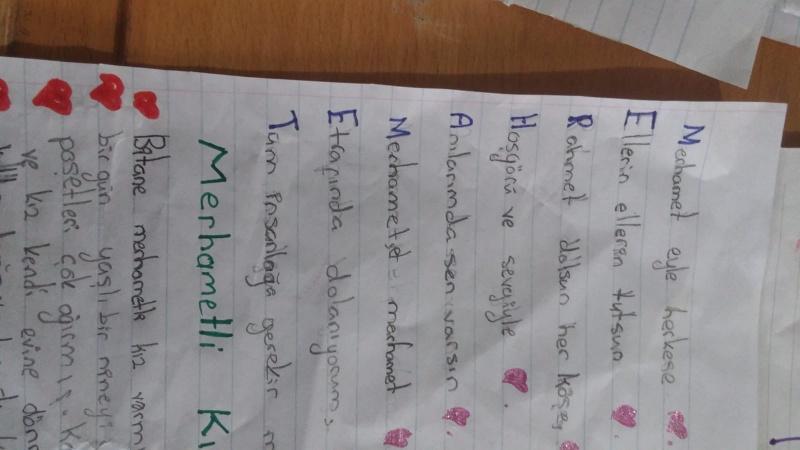 Merhamet eyle herkese
Ellerin ellerin tutsun
Rahmet dolsun her köşe,
Hoşgörü ve sevgiyle
Anılarımda sen varsın
Merhamet merhamet
Etrafında dolanıyorum,
Tüm insanlığa gerekir
Merhametli
Bitane merhametli kız
bir gün yaşlı bir
poşetleri çok ağırmış.
ve kız kendi evine